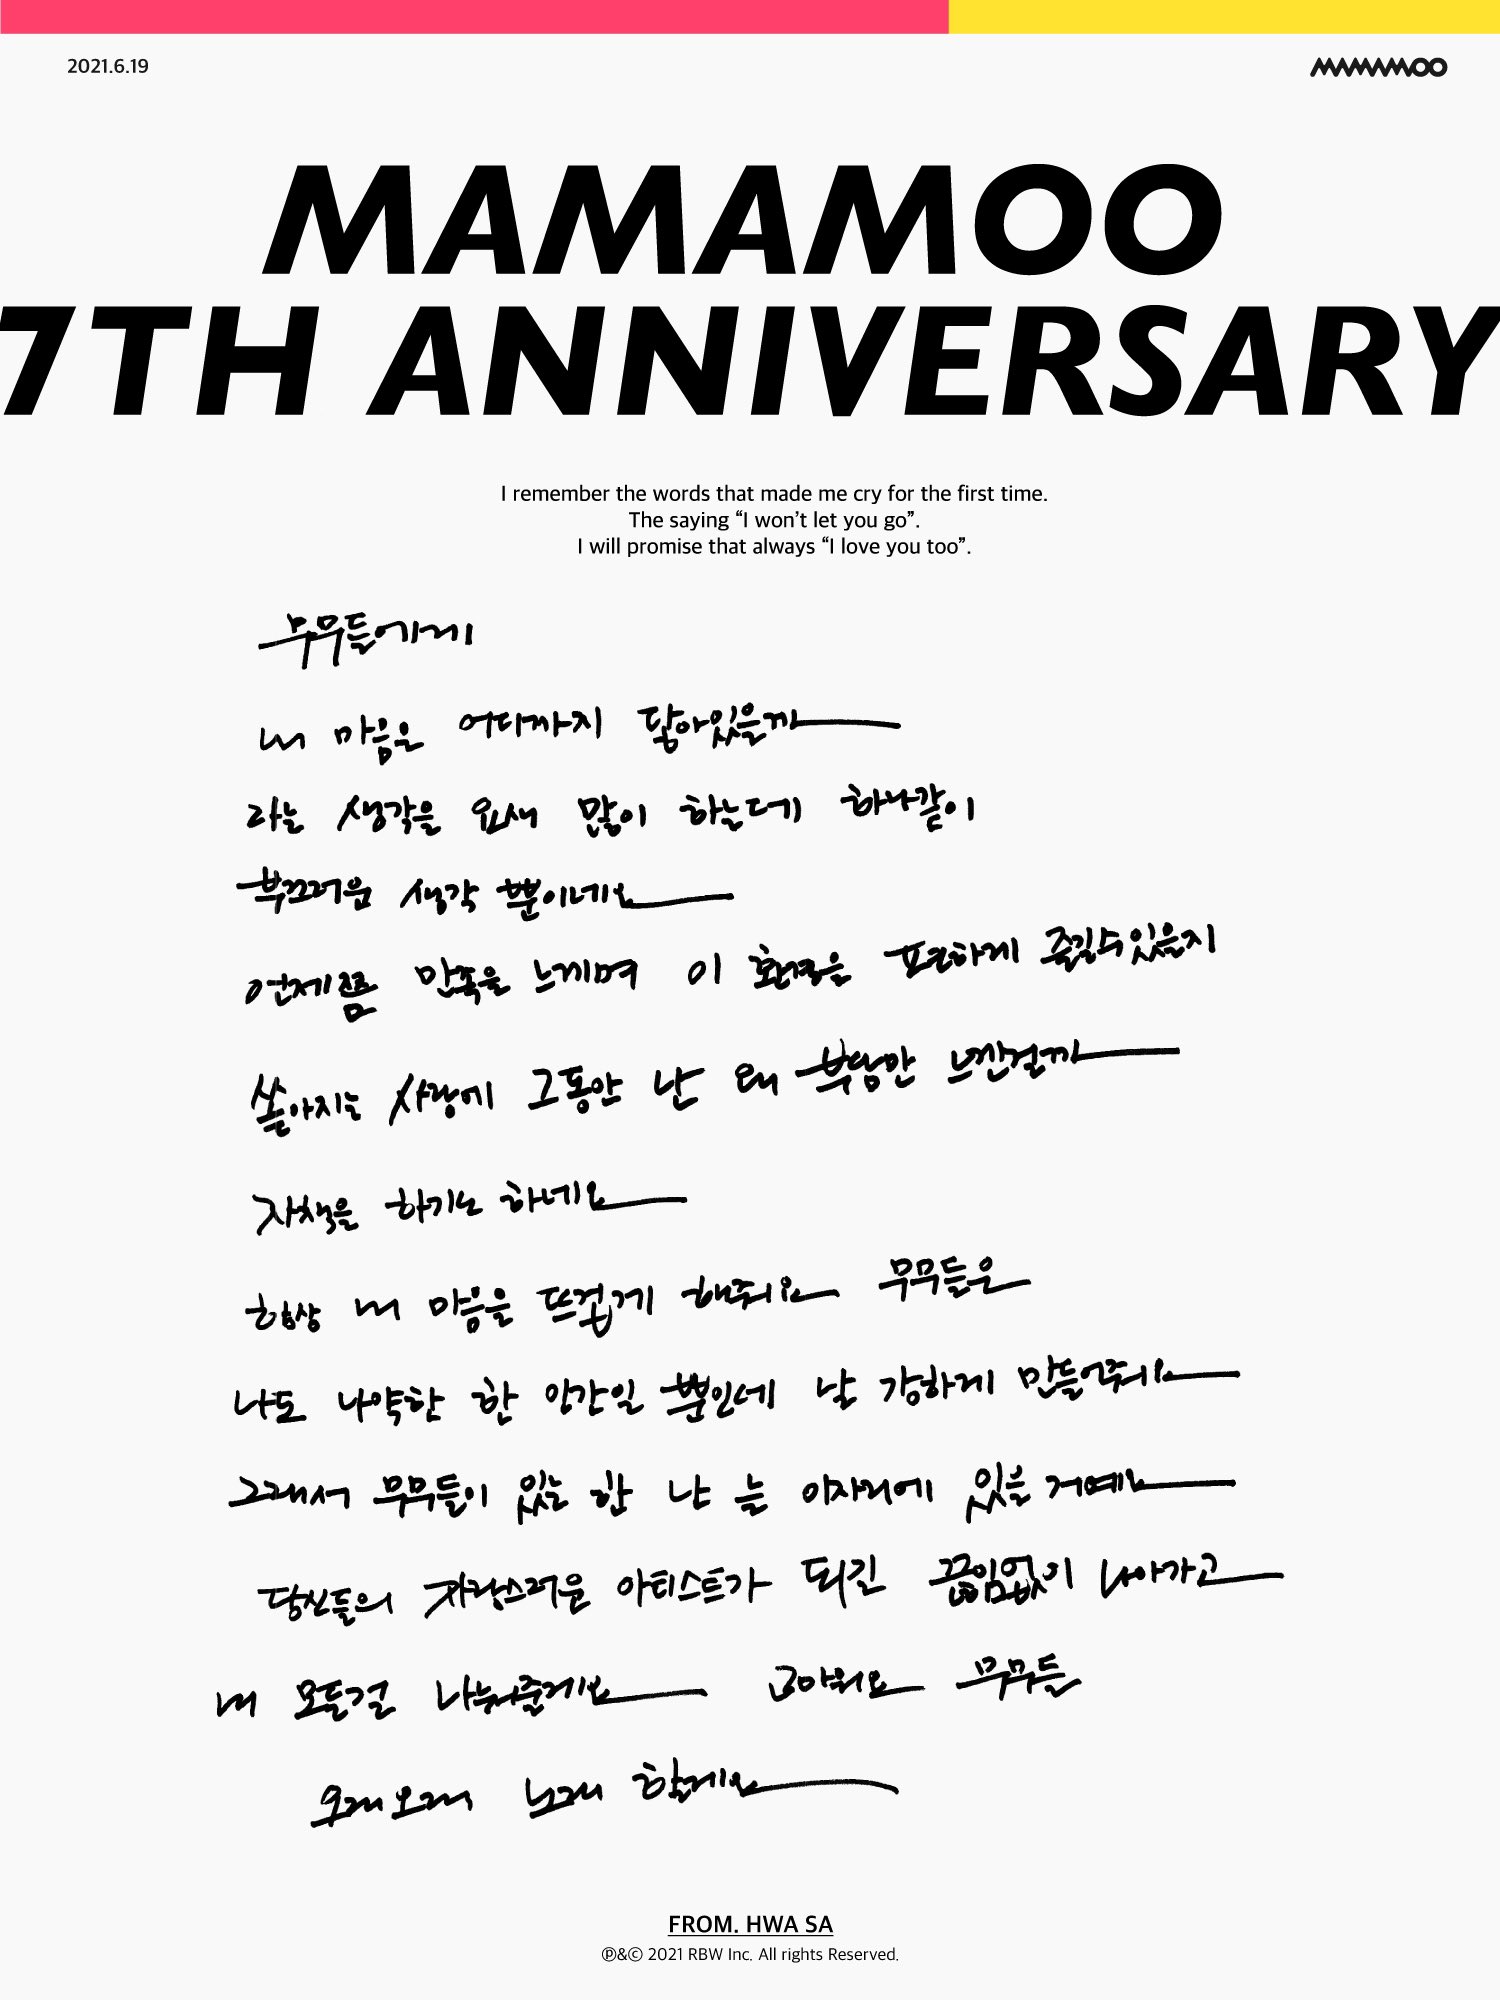 2021.6.19
MAMAMOO
MAMAMOO
7TH ANNIVERSARY
I remember the words that made me cry for the first time.
The saying “I won’t let you go”.
I will promise that always “I love you too”.
무무들에게
내 마음은 어디까지 닿아있을까
라는 생각을 요새 많이 하는데 하나같이
부끄러운 생각 뿐이네요
언제쯤 만족을 느끼며 이 환경을 편하게 즐길수있을지
쏟아지는 사랑에 그동안 난 왜 부담만 느낀걸까
자책을 하기도 하네요
항상 내 마음을 뜨겁게 해줘요 무무들은
나도 나약한 한 인간일 뿐인데 날 강하게 만들어줘요
그래서 무무들이 있는 한 나는 이자리에 있을 거예요
당신들의 자랑스러운 아티스트가 되길 끊임없이 나아가고
내 모든걸 나눠줄게요 고마워요 무무들
오래오래 노래 할게요
FROM. HWA SA
℗&© 2021 RBW Inc. All rights Reserved.